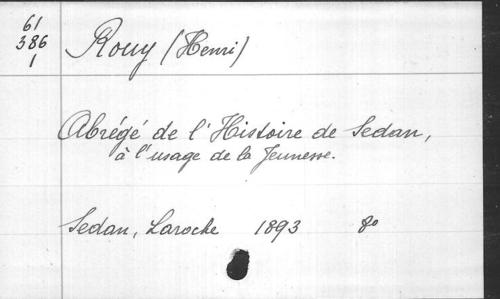 61
386
1
Rouy (Henri)
Abrégé de l'Histoire de Sedan,
à l'usage de la Jeunesse.
Sedan, Laroche 1893 8o